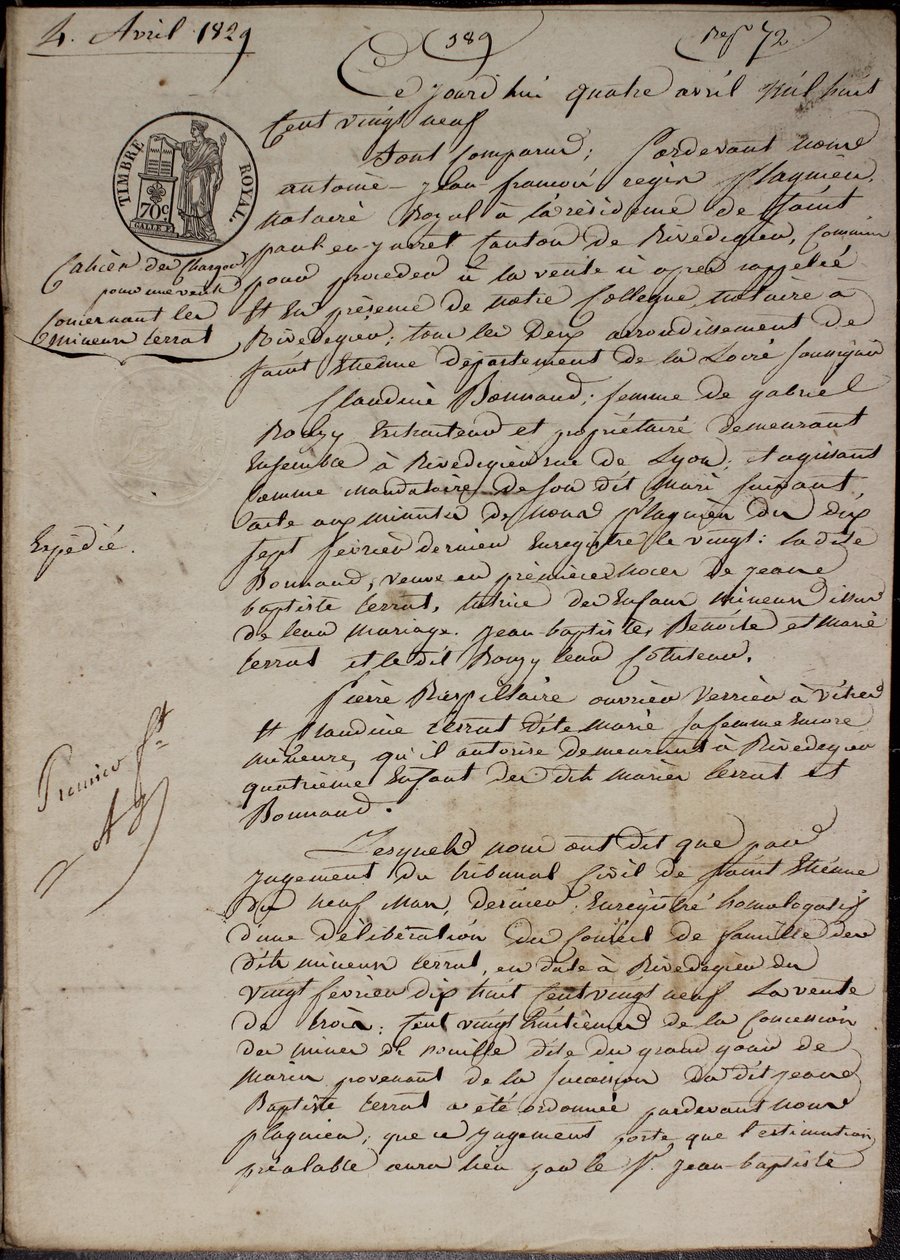 4. Avril 1829
189
Rep. 72
Ce jourd'hui quatre avril mil huit
Cent vingt neuf
Sont Comparus; Pardevant nous
antoine-jean-francois regis Plagnieu,
notaire Royal à la résidence de Saint
paul-en-jarret Canton de Rivedegier, Commis
pour proceder à la vente ci apres rappelée
Et En présence de notre Collegue notaire a
Rivedegier; tous les Deux arrondissement de
Saint Etienne département de la Loire soussignés
TIMBRE ROYAL.
70c
Cahier des Charges
pour une vente
Concernant les
mineurs terrat
Claudine Bonnand; femme de gabriel
Rouzy Entrauteur et propriétaire demeurant
Ensemble à Rivedegier rue de Lyon; et agissant
Comme mandataire de son dit mari suivant
acte aux minutes de nous Plagnieu du dix
sept fevrier dernier Enregistré le vingt: la dite
Bonnand, veuve en prémieres noces de jean
baptiste terrat, tutrice des Enfans mineurs issus
de leur mariage. jean-baptiste, Benoite et marie
terrat et le dit Rouzy leur Cotuteur.
Expédié.
Pierre Rispillaire ouvrier verrier à
Et Claudine terrat dite marie sa femme Encore
mineure, qu'il autorise demeurant à Rivedegier
quatrième Enfant des dits mariés terrat et
Bonnand.
Premier ft
Lesquels nous ont dit que par
jugement du tribunal Civil de Saint Etienne
du neuf Mars dernier; Enregistré homologatif
d'une délibération du Conseil de famille des
dits mineurs terrat, en date à Rivedegier du
vingt fevrier dix huit Cent vingt neuf La vente
de trois: Cent vingt huitiemes de la Concession
des mines de houille dite du grand gour de
Marin provenant de la succession du dit jean
Baptiste terrat a été ordonnée pardevant nous
plagnieu; que ce jugement porte que l'estimation
préalable aura lieu par le Sr. Jean-baptiste